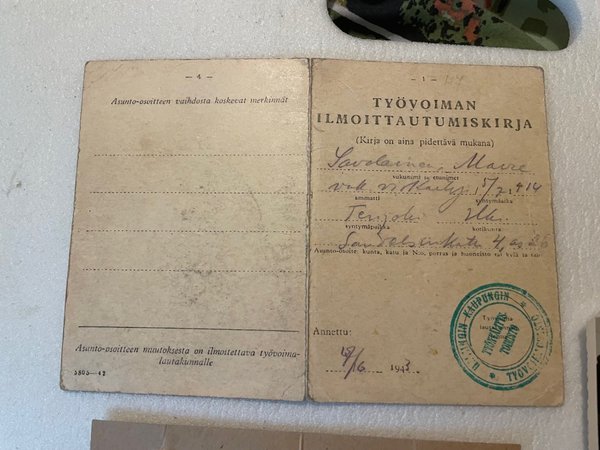 — 4 —
Asunto-osoitteen vaihdosta koskevat merkinnät
Asunto-osoitteen muutoksesta on ilmoitettava työvoima-
lautakunnalle
5805—42
— 1 —
TYÖVOIMAN
ILMOITTAUTUMISKIRJA
(Kirja on aina pidettävä mukana)
Savolainen, Maire
sukunimi ja etunimet
1914
ammatti syntymäaika
syntymäpaikka kotikunta
4, as 26
Asunto-osoite: kunta, katu ja N:o, porras ja huoneisto tai kylä ja talo
Annettu:
1943
KAUPUNGIN